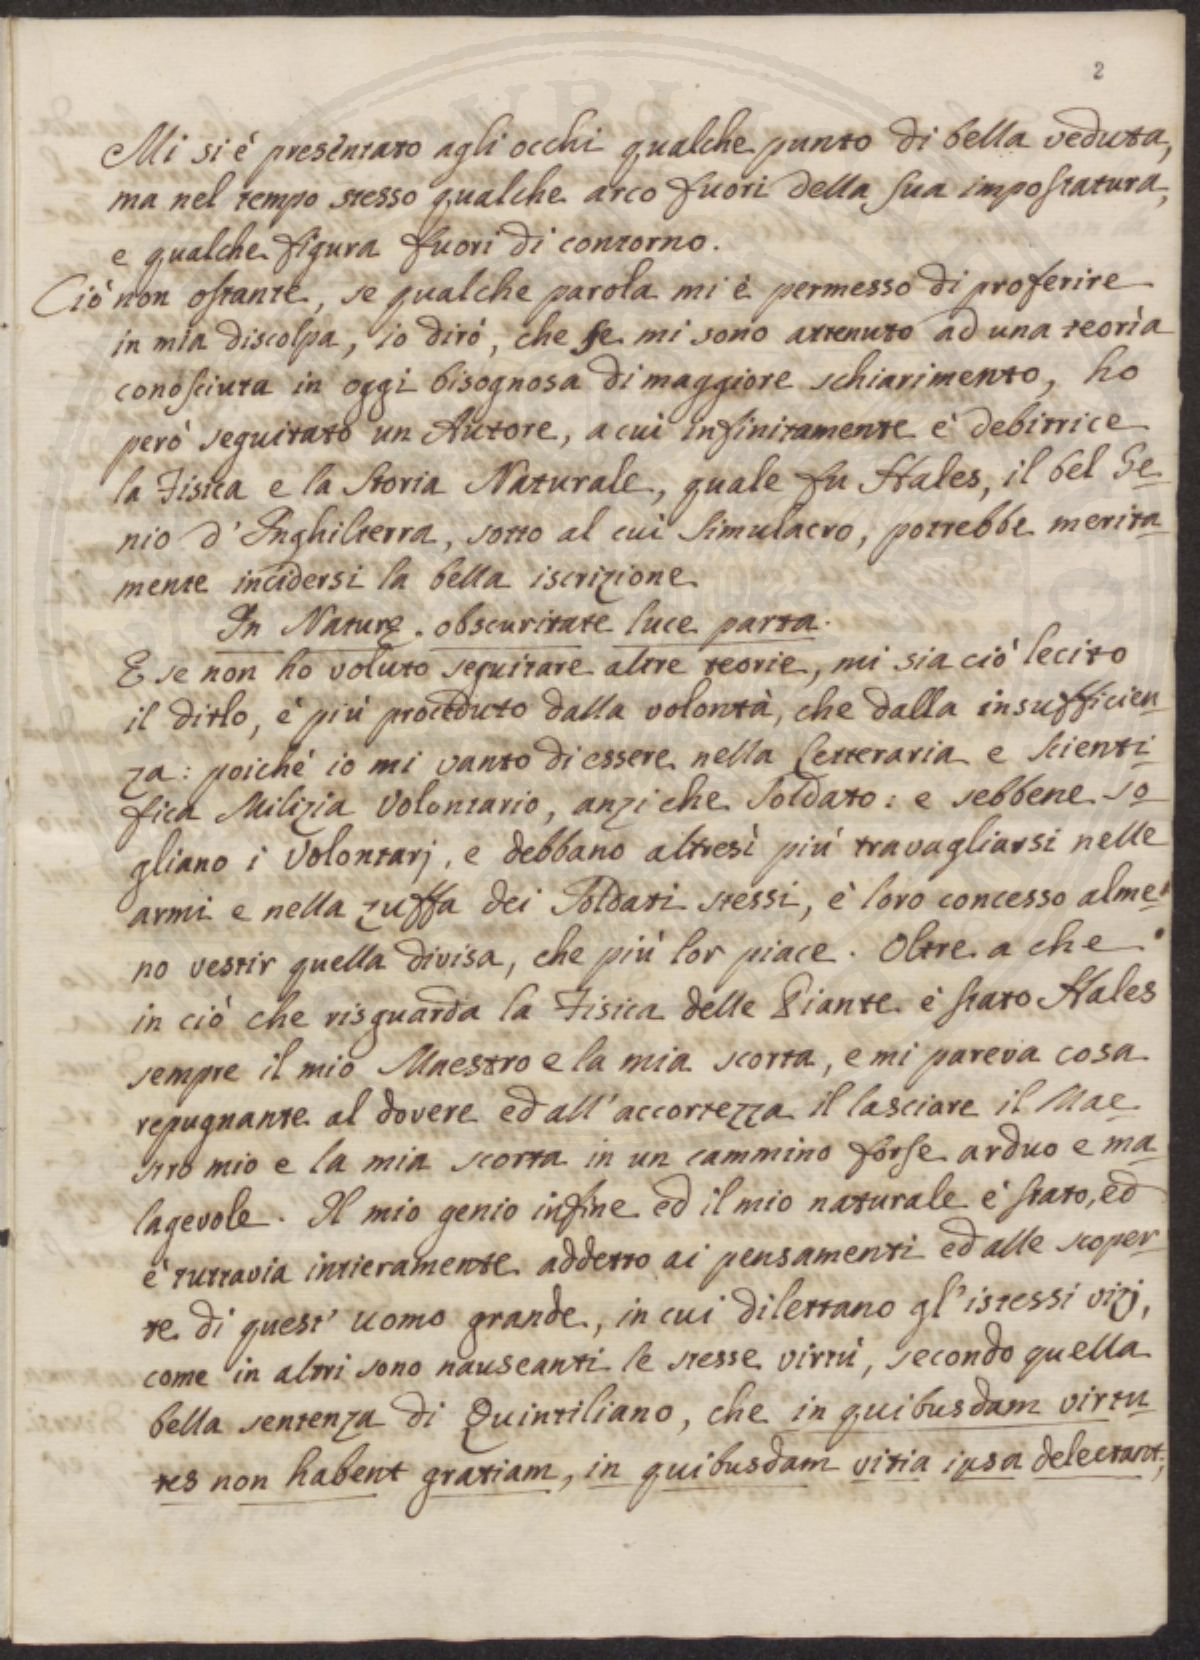 2
Mi si è presentato agli occhi qualche punto di bella veduta,
ma nel tempo stesso qualche arco fuori della sua impostatura,
e qualche figura fuori di contorno.
Ciò non ostante, se qualche parola mi è permesso di proferire
in mia discolpa, io dirò, che se mi sono attenuto ad una teorìa
conosciuta in oggi bisognosa di maggiore schiarimento, ho
però seguitato un Autore, a cui infinitamente è debitrice
la Fisica e la Storia Naturale, quale fu Hales, il bel Ge-
nio d'Inghilterra, sotto al cui Simulacro, potrebbe merita-
mente incidersi la bella iscrizione
In Naturę obscuritate luce parta.
E se non ho voluto seguitare altre teorie, mi sia ciò lecito
il dirlo, è più proceduto dalla volontà, che dalla insufficien-
za: poichè io mi vanto di essere nella Letteraria e Scienti-
fica Milizia Volontario, anzi che Soldato: e sebbene so-
gliano i Volontarj, e debbano altresì più travagliarsi nelle
armi e nella zuffa dei Soldati stessi, è loro concesso alme-
no vestir quella divisa, che più lor piace. Oltre a che
in ciò che risguarda la Fisica delle Piante è stato Hales
sempre il mio Maestro e la mia scorta, e mi pareva cosa
repugnante al dovere ed all'accortezza il lasciare il Mae-
stro mio e la mia scorta in un cammino forse arduo e ma-
lagevole. Il mio genio infine ed il mio naturale è stato, ed
è tuttavia intieramente addetto ai pensamenti ed alle scoper-
te di quest' uomo grande, in cui dilettano gl'istessi vizj,
come in altri sono nauseanti le stesse virtù, secondo quella
bella sentenza di Quintiliano, che in quibusdam virtu-
tes non habent gratiam, in quibusdam vitia ipsa delectant;